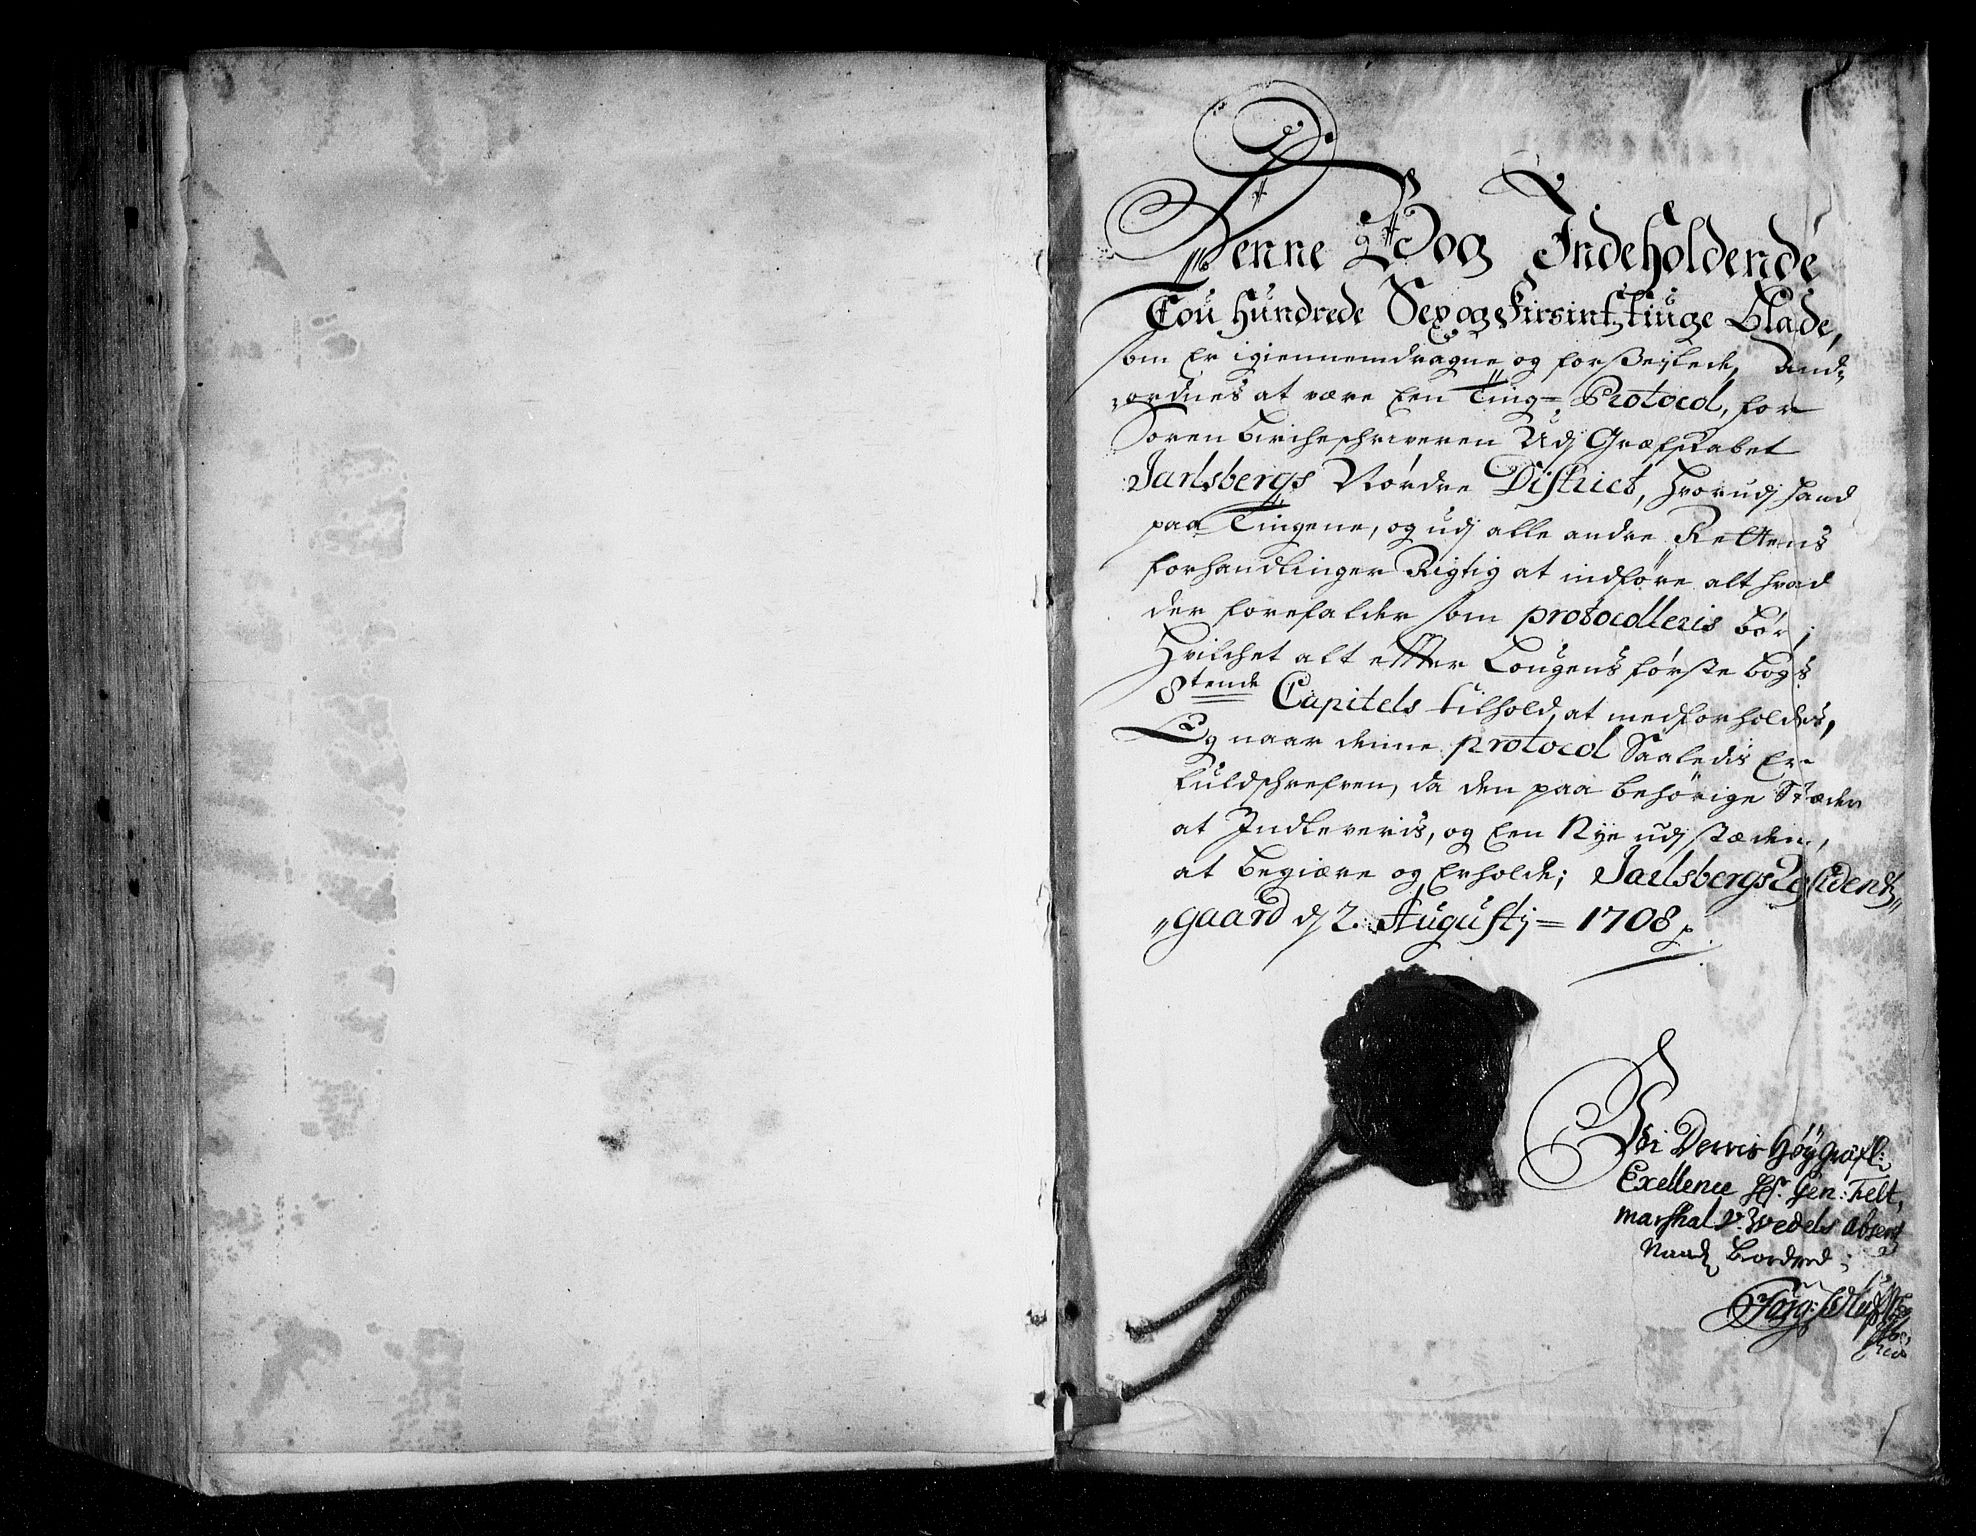 Denne Bog Indeholdende
Tou Hundrede Sex og Firsints Tiuge Blade,
som Er igiennemdragne og forseiglede, And-
ordnes at være Een Ting-Protocol, for
Soren Bircheschriveren Udj Græfskabet
Jarlsbergs Nordre District, Hvorudj hand
paa Tingene, og udj alle andre Rettens
forhandlinger Rigtig at indføre alt hvad
der forefalder som protocolleris bør;
Hvilchet alt effter Lougens første bogs
8tende Capitels tilhold, at medforholdes,
Og naar denne protocol Saaledis Er
fuldschrefven, da den paa behörige Stæder
at Indleveris, og Een Nye udj stæden,
at begiære og Erholde; Jarlsbergs Residentz
gaard dj 2. Augustj = 1708
Udi Derris Høygrefl:
Exellence Hr. Gen: Felt,
marshal v: Wedels absentz